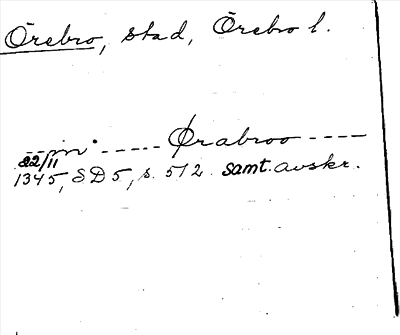 Örebro, stad, Örebro l.
--in ----- Ørabroo ----
22/11
1345, SD5, s. 512. samt. avskr.